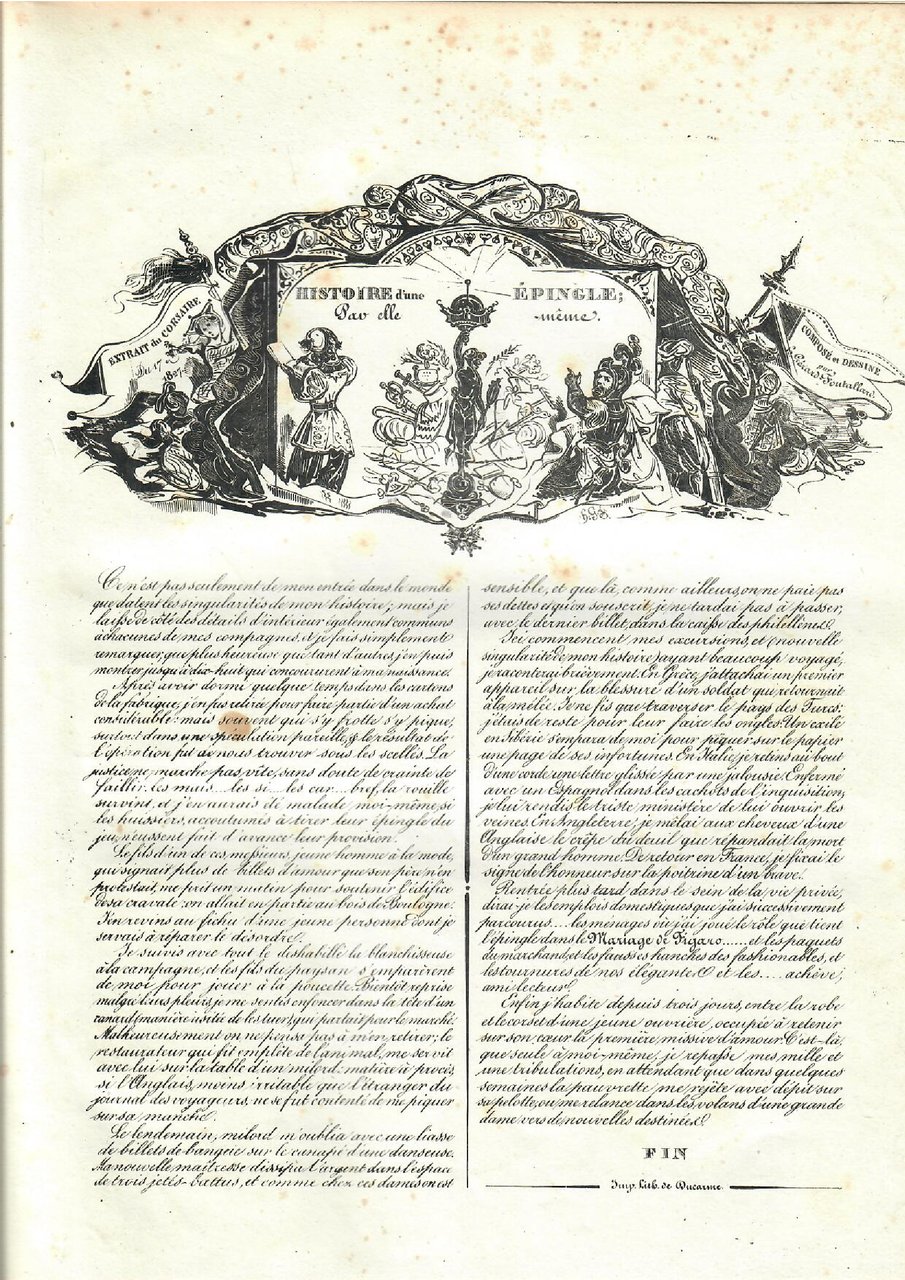 HISTOIRE d'une ÉPINGLE;
Par elle -même.
EXTRAIT du CORSAIRE
Du 17
COMPOSÉ et DESSINÉ
par
Ce n'est pas seulement de mon entrée dans le monde
que datent les singularités de mon histoire; mais je
laisse de côté des détails d'intérieur également communs
à chacunes de mes compagnes, et je fais simplement
remarquer, que plus heureuse que tant d'autres, j'en puis
montrer jusqu'à dix-huit qui concoururent à ma naissance.
Après avoir dormi quelque temps dans les cartons
de la fabrique, j'en fus retiré pour faire partie d'un achat
considérable: mais souvent qui s'y frotte s'y pique,
surtout dans une spéculation pareille, & le résultat de
l'opération fut de nous trouver sous les scellés. La
justice ne marche pas vite, sans doute de crainte de
faillir. les mais... les si... les car... bref, la rouille
survint, et j'en aurais été malade moi-même, si
les huissiers, accoutumés à tirer leur épingle du
jeu, n'eussent fait d'avance leur provision.
Le fils d'un de ces messieurs, jeune homme à la mode,
qui signait plus de billets d'amour que son père n'en
protestait, me prit un matin pour soutenir l'édifice
de sa cravate: on allait en partie au bois de Boulogne.
J'en revins au fichu d'une jeune personne dont je
servais à réparer le désordre.
Je suivis avec tout le deshabillé la blanchisseuse
à la campagne, et les fils du paysan s'emparèrent
de moi pour jouer à la poucette. Bientôt reprise
malgré leurs pleurs, je me sentis enfoncer dans la tête d'un
canard (manière usitée de les tuer) qui partait pour le marché.
Malheureusement on ne pensa pas à m'en retirer; le
restaurateur qui fit emplète de l'animal, me servit
avec lui sur la table d'un milord: matière à procès,
si l'Anglais, moins irritable que l'étranger du
journal des voyageurs, ne se fut contenté de me piquer
sur sa manche.
Le lendemain, milord m'oublia avec une liasse
de billets de banque sur le canapé d'une danseuse.
Ma nouvelle maitresse dissipa l'argent dans l'espace
de trois jetés-battus, et comme chez ces dames on est
sensible, et que là, comme ailleurs, on ne paie pas
ses dettes et qu'on souscrit, je ne tardai pas à passer,
avec le dernier billet, dans la caisse des philellènes.
Ici commencent mes excursions, et (nouvelle
singularité de mon histoire) ayant beaucoup voyagé,
je raconterai brièvement. En Grèce, j'attachai un premier
appareil sur la blessure d'un soldat qui retournait
à la mêlée. Je ne fis que traverser le pays des Turcs:
j'étais de reste pour leur faire les ongles. Un exilé
en Sibérie s'empara de moi pour piquer sur le papier
une page de ses infortunes. En Italie, je tins au bout
d'une corde une lettre glissée par une jalousie. Enfermé
avec un Espagnol dans les cachots de l'inquisition,
je lui rendis le triste ministère de lui ouvrir les
veines. En Angleterre, je mêlai aux cheveux d'une
Anglaise le crêpe du deuil que répandait la mort
d'un grand homme. De retour en France, je fixai le
signe de l'honneur sur la poitrine d'un brave.
Rentrée plus tard dans le sein de la vie privée,
dirai-je les emplois domestiques que j'ai successivement
parcourus.... les ménages où j'ai joué le rôle que tient
l'épingle dans le Mariage de Figaro..... et les paquets
du marchand, et les fausses hanches des fashionables, et
les tournures de nos élégantes et les.... achève,
ami lecteur.
Enfin j'habite depuis trois jours, entre la robe
et le corset d'une jeune ouvrière, occupée à retenir
sur son cœur la première missive d'amour. C'est-là,
que seule à moi-même, je repasse mes mille et
une tribulations, en attendant que dans quelques
semaines la pauvrette me rejète avec dépit sur
sa pelotte, ou me relance dans les volans d'une grande
dame vers de nouvelles destinées.
FIN
Imp. Lith. de Ducarme.